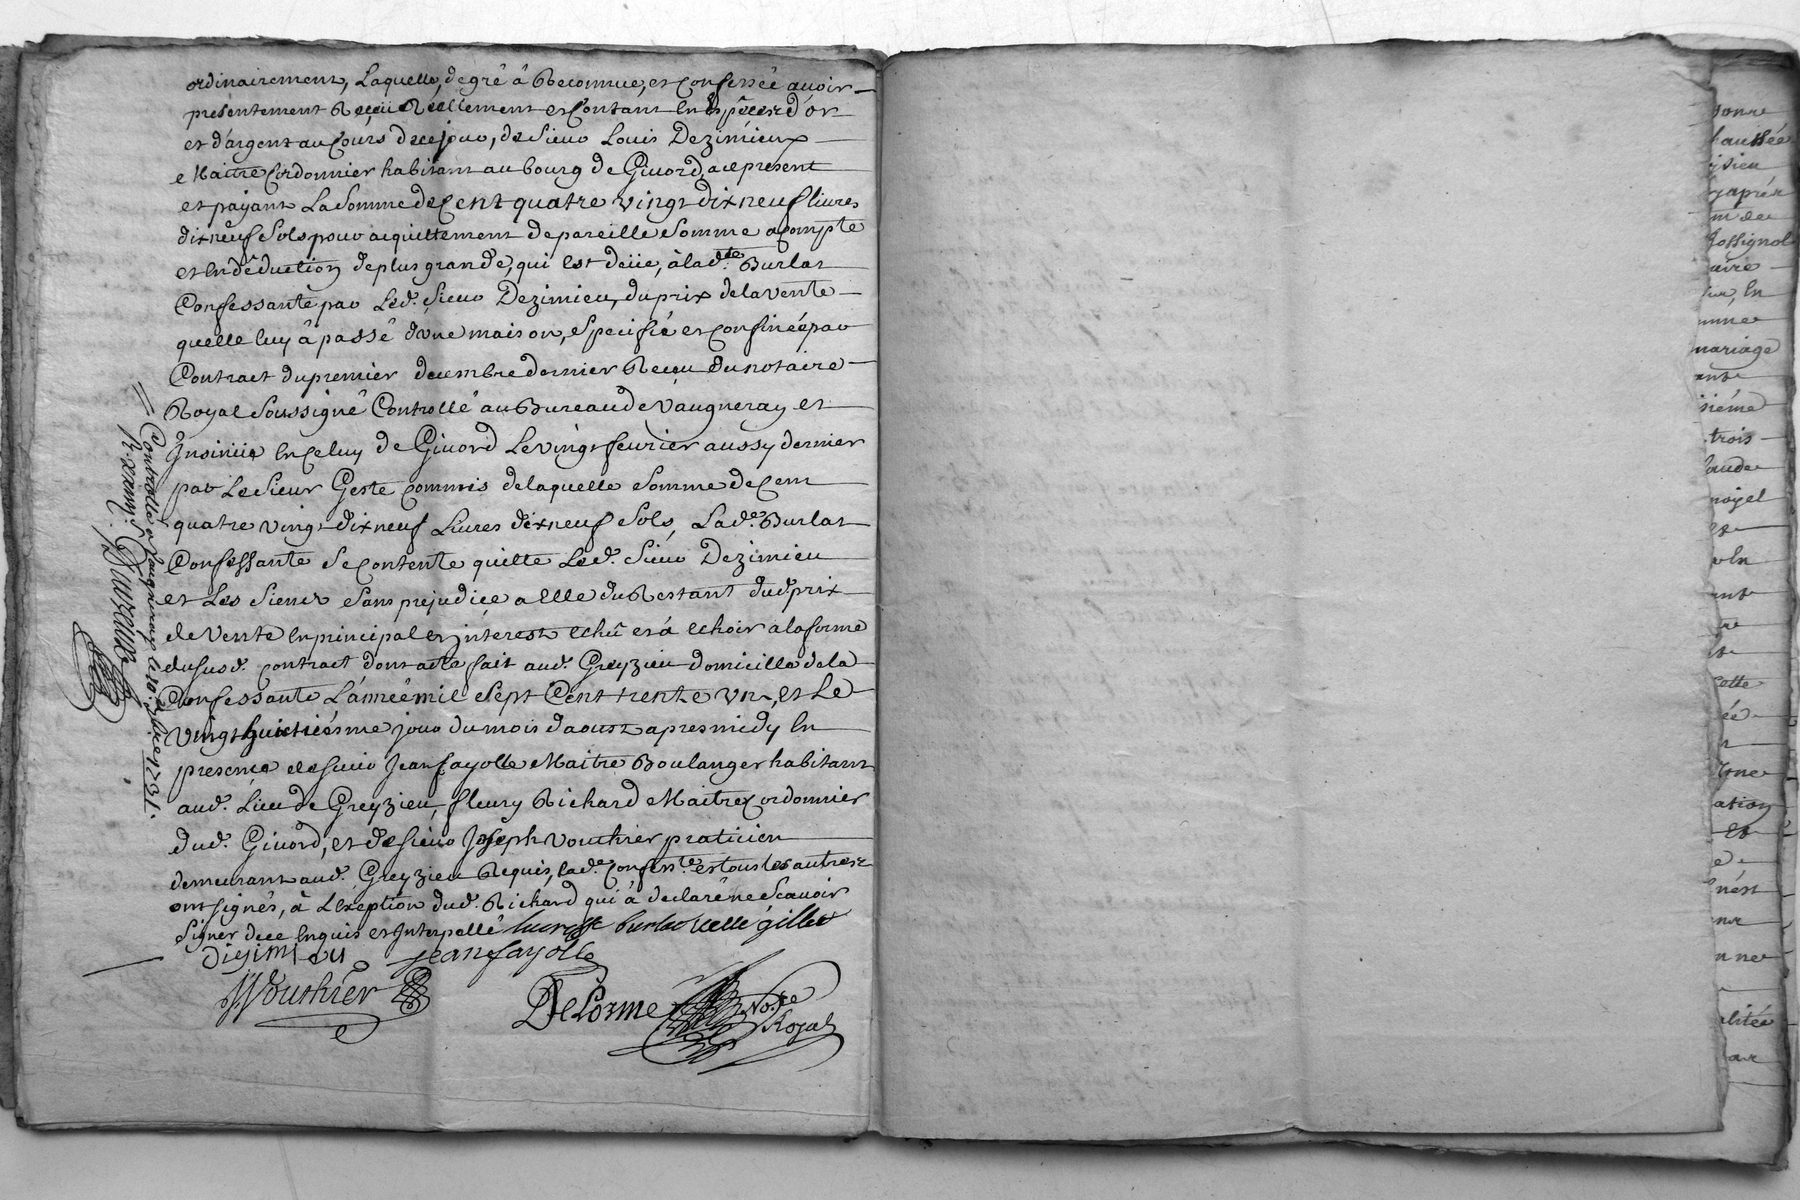 ordinairement, Laquelle, de gré â Reconnue, et Confessée avoir
presentement Reçeü Reellement et Contant En Espêces d'or
et d'argent au Cours de ce jour, de Sieur Louis Dezimieux
Maitre Cordonnier habitant au bourg de Givord, ace present
et payant La Somme de Cent quatre vingt dix neuf livres
dix neuf Sols pour acquittement de pareille Somme acompte
et En dêduction de plus grande, qui Est deüe, à lad.te Burlat
Confessante par Led. Sieur Dezimieu, du prix de la vente
quelle luy â passé d'une maison, Specifié et Confinée par
Contract du premier decembre dernier Reçeu du notaire
Royal Soussigné Controllé au Bureau de Vaugneray et
Insinüé En Celuy de Givord Le vingt fevrier aussy dernier
par Le Sieur Geste Commis de laquelle Somme de Cent
quatre vingt dix neuf Livres dix neuf Sols, Lad.e Burlat
Confessante Se Contente quitte Led. Sieur Dezimieu
et Les Siens Sans prejudice a Elle du Restant dud. prix
de vente En principal et interest Echû et â Echoir a la forme
du Susd. Contract dont acte fait aud. Greyzieu domicille de la
Confessante L'année mil Sept Cent trente un, et Le
vingt huictiésme jour du mois d'aoust apres midy En
presence de Sieur Jean fayolle Maitre Boulanger habitant
aud. Lieu de Greyzieu, fleury Richard Maitre Cordonnier
dud. Givord, et de Sieur Joseph Vouthier praticien
demeurant aud. Greyzieu Requis, lad.e Confess.te et tous les autres
ont signés, à L'Exeption dud. Richard qui â declaré ne Scavoir
Signer de ce Enquis et Interpellé Lucresse burlat veuve gillet
Disimieu jean fayolle
JVouthier
DeLorme No.re
Royal
Controllé a Vaugneray le 10. 7bre 1731.
R.
sonne
haussée
apréz
m de
Rossignol
aire
En
mariage
siéme
trois
noyel
Cette
ée
ation
Et
n'ést
ne
alitée